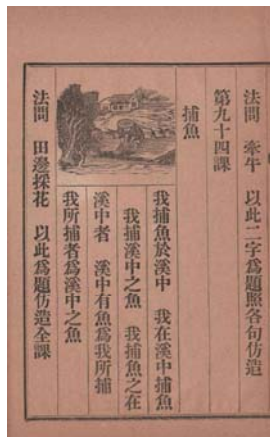 法問　牽牛　以此二字爲題照各句仿造
第九十四課
捕魚
我捕魚於溪中　我在溪中捕魚
我捕溪中之魚　我捕魚之在
溪中者　溪中有魚爲我所捕
我所捕者爲溪中之魚
法問　田邊採花　以此爲題仿造全課